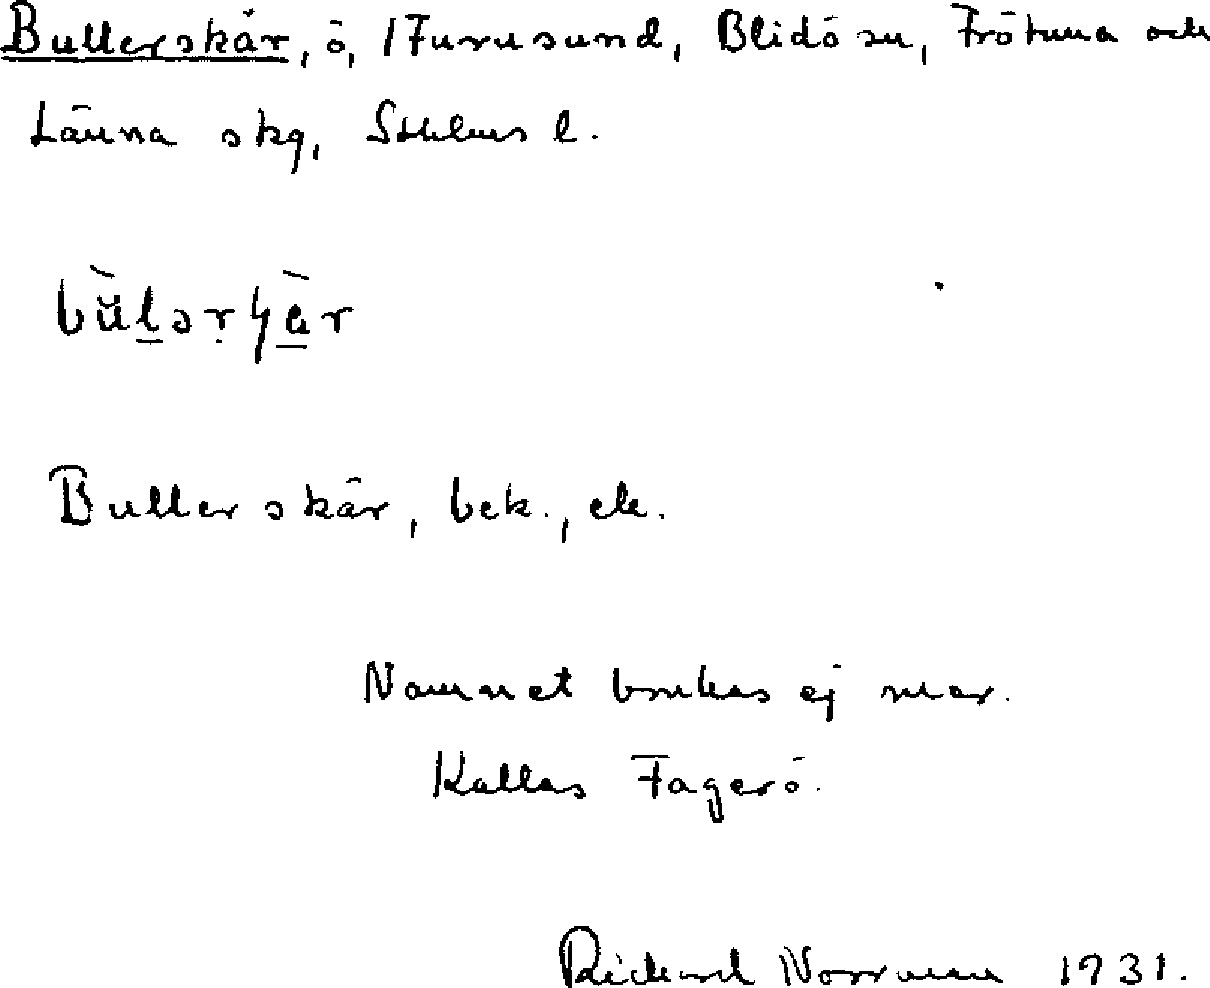 Bullerskär, ö, /Furusund, Blidö sn, Frötuna och
Länna skg, Sthlms l.
Bullerskär, bek., ek.
Namnet brukas ej mer.
Kallas Fagerö.
Rickard Norrman 1931.